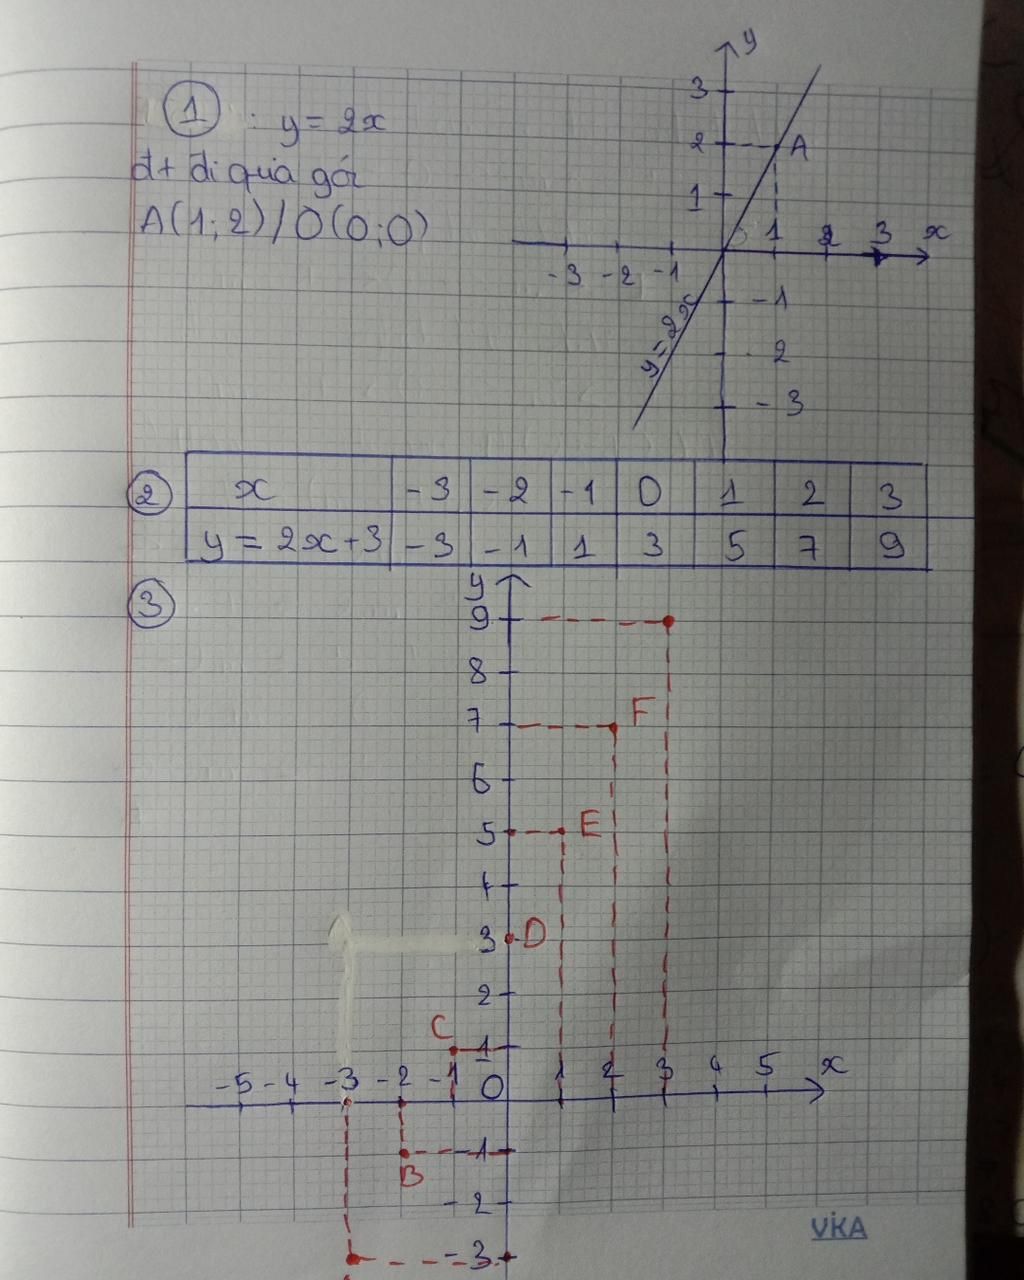 1 : y = 2x
đt đi qua gốc
A(1; 2) / O(0; 0)
y
3
2 A
1
O 1 2 3 x
-3 -2 -1
-1
2
-3
y = 2x
2
x -3 -2 -1 0 1 2 3
y = 2x+3 -3 -1 1 3 5 7 9
3
y
9
8
7 F
6
5 E
4
3 D
2
C 1
-5 -4 -3 -2 -1 0 1 2 3 4 5 x
-1
B
-2
-3
VIKA